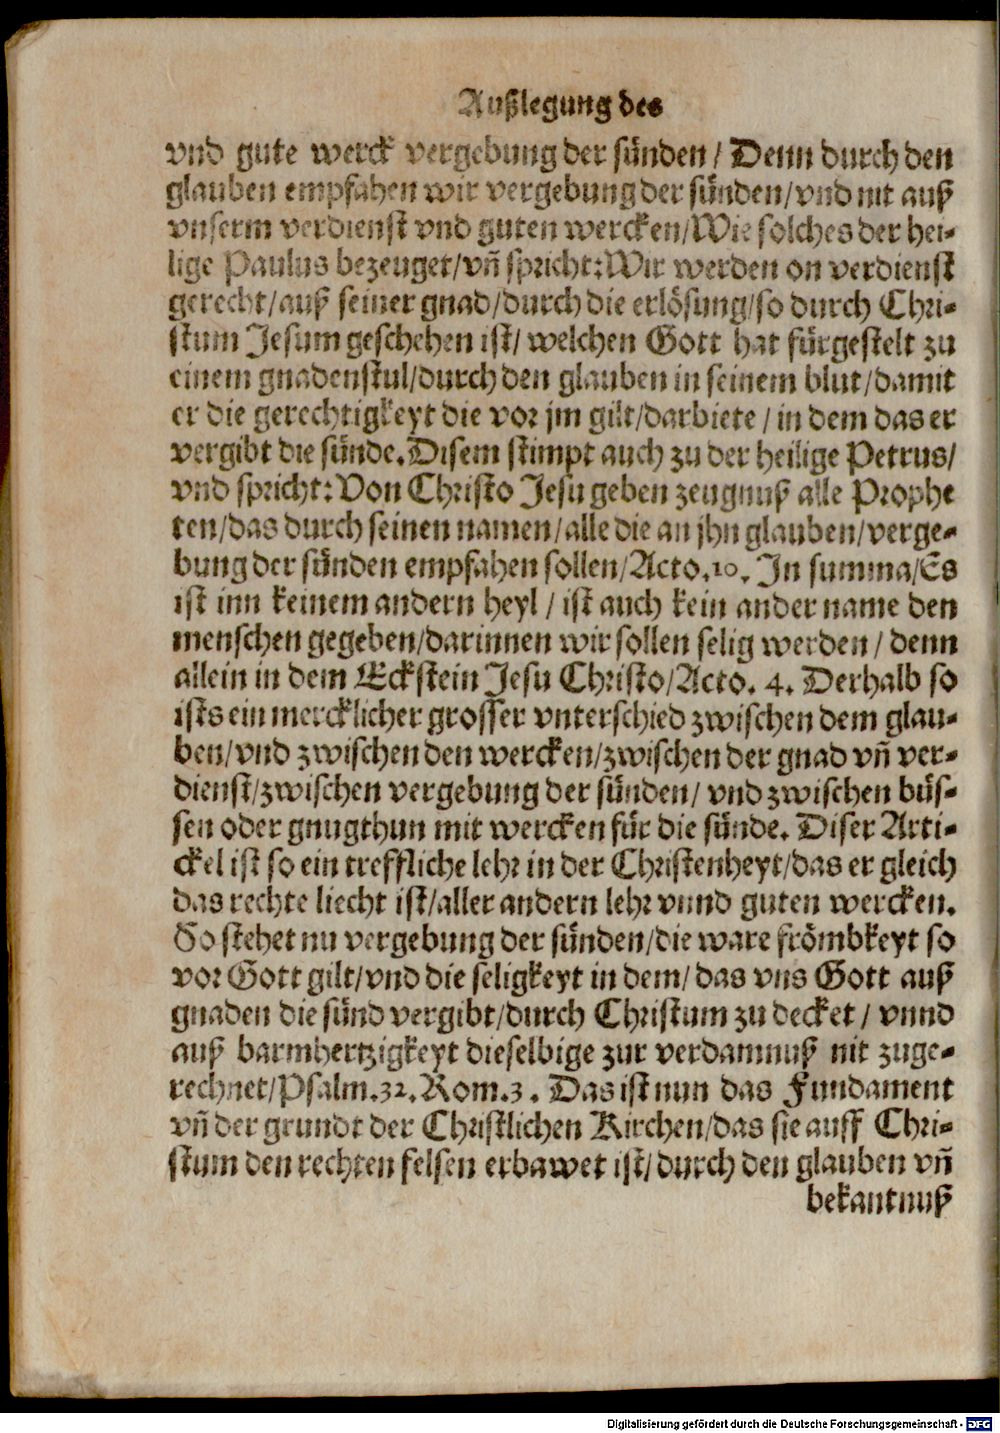 Außlegung des
vnd gute werck vergebung der sünden / Denn durch den
glauben empfahen wir vergebung der sünden/vnd nit auß
vnserm verdienst vnd guten wercken/Wie solches der hei-
lige Paulus bezeuget/vñ spricht:Wir werden on verdienst
gerecht/auß seiner gnad/durch die erlösung/so durch Chri-
stum Jesum geschehen ist/ welchen Gott hat fürgestelt zu
einem gnadenstul/durch den glauben in seinem blut/damit
er die gerechtigkeyt die vor jm gilt/darbiete / in dem das er
vergibt die sünde.Disem stimpt auch zu der heilige Petrus/
vnd spricht:Von Christo Jesu geben zeugnuß alle Prophe
ten/das durch seinen namen/alle die an jhn glauben/verge-
bung der sünden empfahen sollen/Acto.10. In summa/Es
ist inn keinem andern heyl / ist auch kein ander name den
menschen gegeben/darinnen wir sollen selig werden / denn
allein in dem Eckstein Jesu Christo/Acto. 4. Derhalb so
ists ein mercklicher grosser vnterschied zwischen dem glau-
ben/vnd zwischen den wercken/zwischen der gnad vñ ver-
dienst/zwischen vergebung der sünden/ vnd zwischen büs-
sen oder gnugthun mit wercken für die sünde. Diser Arti-
ckel ist so ein treffliche lehr in der Christenheyt/das er gleich
das rechte liecht ist/aller andern lehr vnnd guten wercken.
So stehet nu vergebung der sünden/die ware frömbkeyt so
vor Gott gilt/vnd die seligkeyt in dem/ das vns Gott auß
gnaden die sünd vergibt/durch Christum zu decket / vnnd
auß barmhertzigkeyt dieselbige zur verdamnuß nit zuge-
rechnet/Psalm.32.Rom.3. Das ist nun das Fundament
vñ der grundt der Christlichen Kirchen/das sie auff Chri-
stum den rechten felsen erbawet ist/durch den glauben vñ
bekantnuß
Digitalisierung gefördert durch die Deutsche Forschungsgemeinschaft - DFG